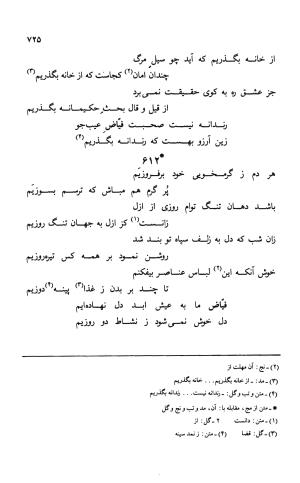 ۷۲۵
از خانه بگذریم که آید چو سیل مرگ
چندان امان(۲) کجاست که از خانه بگذریم(۳)
جز عشق ره به کوی حقیقت نمی‌برد
از قیل و قال بحث حکیمانه بگذریم
رندانه نیست صحبت فیّاض عیب‌جو
زین آرزو بهست که رندانه بگذریم(۴)
*۶۱۲
هر دم ز گرمخویی خود برفروزیم
پُر گرم هم مباش که ترسم بسوزیم
باشد دهان تنگ توام روزی از ازل
زانست(۱) کز ازل به جهان تنگ روزیم
زان شب که دل به زلف سیاه تو بند شد
روشن نمود بر همه کس تیره‌روزیم
خوش آنکه این(۲) لباس عناصر بیفکنم
تا چند بر بدن ز غذا(۳) پینه(۴) دوزیم
فیّاض ما به عیش ابد دل نهاده‌ایم
دل خوش نمی‌شود ز نشاط دو روزیم
(۲) ـ نج: آن مهلت از
(۳) ـ مد: ـ از خانه بگذریم... خانه بگذریم
(۴) ـ متن و تب و گل: ـ رندانه نیست... رندانه بگذریم
* ـ متن از مج، مقابله با: آن، مد و تب و نج و گل
(۱) ـ متن: دانست ۲ ـ گل: از
(۳) ـ گل: قضا (۴) ـ متن: ز نمد سینه